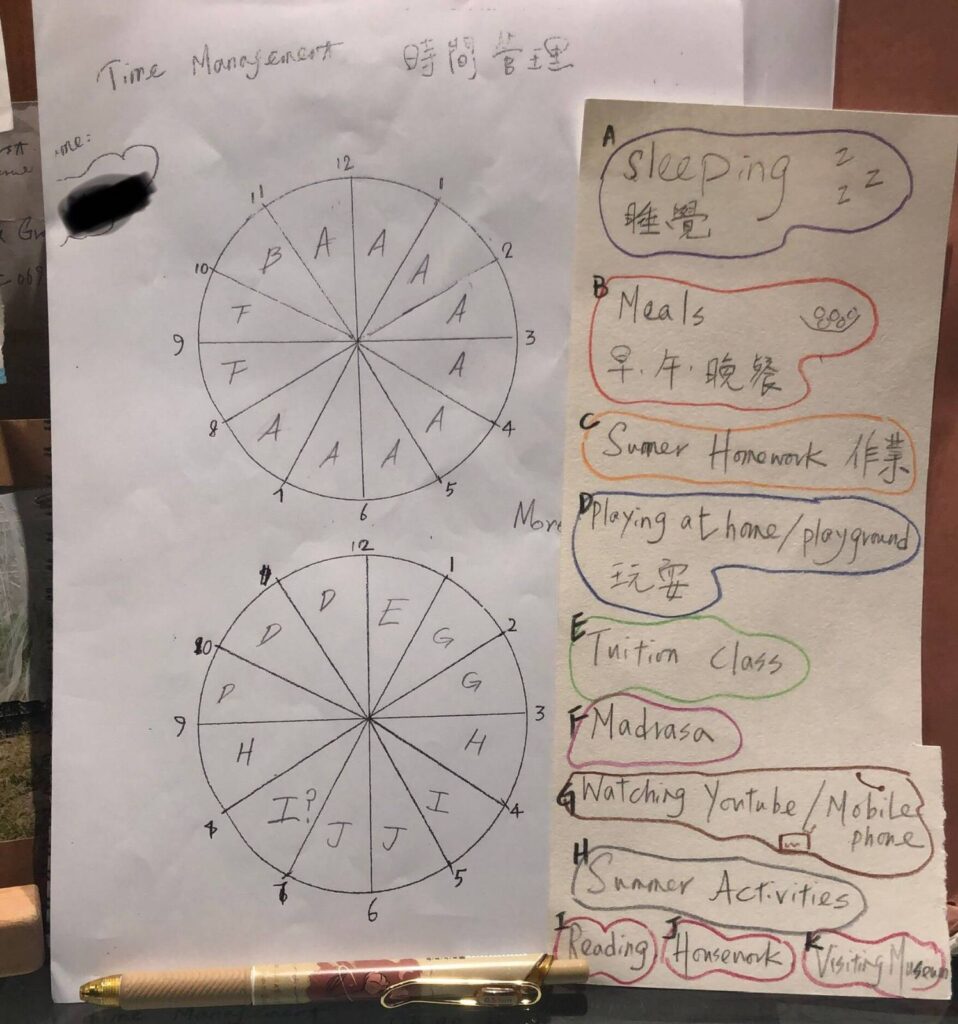 Time Management 時間管理
me:
12
11 1
B A A
10 A 2
F A
9 3
F A
8 A A 4
A A
7 5
6
More
12
11 1
D E
D G
10 2
D G
9 3
H H
8 I? I 4
J J
7 5
6
A
sleeping z z z
睡覺
B
Meals
早.午.晚餐
C
Sumer Homework 作業
D
playing at home/playground
玩耍
E
Tuition Class
F
Madrasa
G
Watching Youtube/Mobile
phone
H
Summer Activities
I J K
Reading Housework Visiting Museum